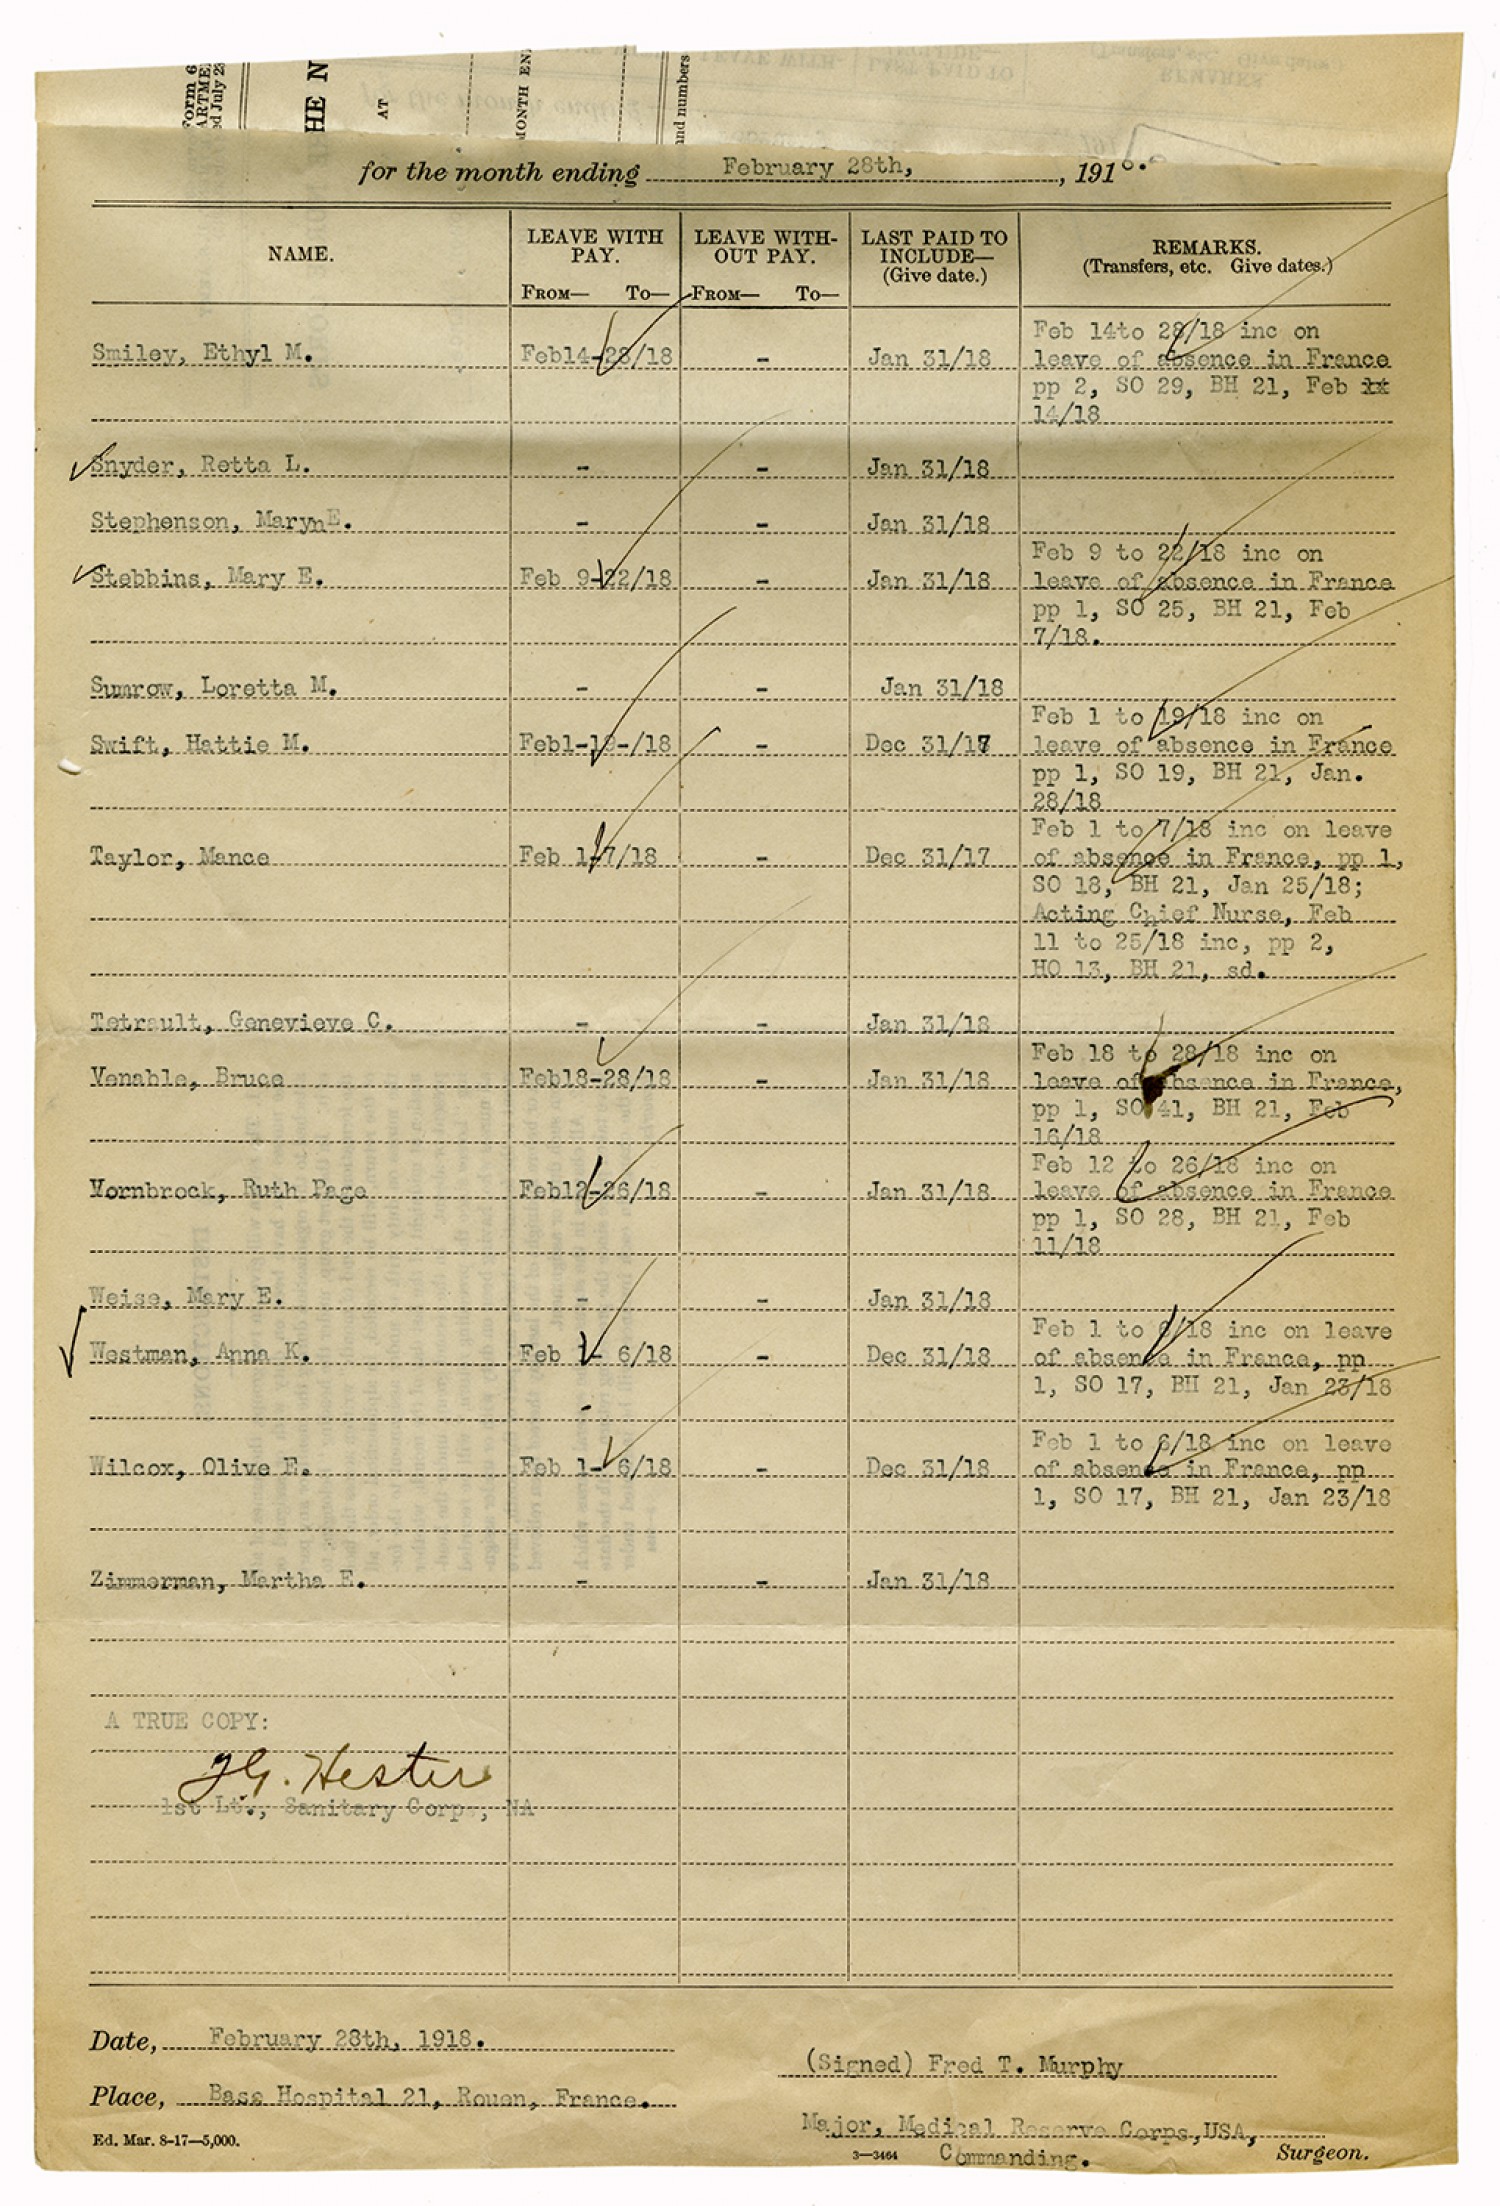 Form 6
ARTME
ed July 23
HE N
AT
MONTH EN
and numbers
for the month ending February 28th, , 191
NAME.
LEAVE WITH PAY.
FROM— TO—
LEAVE WITH-OUT PAY.
FROM— TO—
LAST PAID TO INCLUDE—
(Give date.)
REMARKS.
(Transfers, etc. Give dates.)
Smiley, Ethyl M. Feb14-28/18 - Jan 31/18 Feb 14to 28/18 inc on
leave of absence in France
pp 2, SO 29, BH 21, Feb
14/18
Snyder, Retta L. - - Jan 31/18
Stephenson, MarynE. - - Jan 31/18
Stebbins, Mary E. Feb 9-22/18 - Jan 31/18 Feb 9 to 22/18 inc on
leave of absence in France
pp 1, SO 25, BH 21, Feb
7/18.
Sumrow, Loretta M. - - Jan 31/18
Swift, Hattie M. Feb1-19-/18 - Dec 31/17 Feb 1 to 19/18 inc on
leave of absence in France
pp 1, SO 19, BH 21, Jan.
28/18
Taylor, Mance Feb 1-7/18 - Dec 31/17 Feb 1 to 7/18 inc on leave
of absence in France, pp 1,
SO 18, BH 21, Jan 25/18;
Acting Chief Nurse, Feb
11 to 25/18 inc, pp 2,
HO 13, BH 21, sd.
Tetrault, Genevieve C. - - Jan 31/18
Venable, Bruce Feb18-28/18 - Jan 31/18 Feb 18 to 28/18 inc on
leave of absence in France,
pp 1, SO 41, BH 21, Feb
16/18
Vornbrock, Ruth Page Feb12-26/18 - Jan 31/18 Feb 12 to 26/18 inc on
leave of absence in France
pp 1, SO 28, BH 21, Feb
11/18
Weise, Mary E. - - Jan 31/18
Westman, Anna K. Feb 1- 6/18 - Dec 31/18 Feb 1 to 6/18 inc on leave
of absence in France, pp
1, SO 17, BH 21, Jan 23/18
-
Wilcox, Olive E. Feb 1- 6/18 - Dec 31/18 Feb 1 to 6/18 inc on leave
of absence in France, pp
1, SO 17, BH 21, Jan 23/18
Zimmerman, Martha E. - - Jan 31/18
A TRUE COPY:
J G. Hester
1st Lt., Sanitary Corps, NA
Date, February 28th, 1918.
(Signed) Fred T. Murphy
Place, Base Hospital 21, Rouen, France.
Major, Medical Reserve Corps,USA,
Ed. Mar. 8-17—5,000.
3—3464 Commanding. Surgeon.